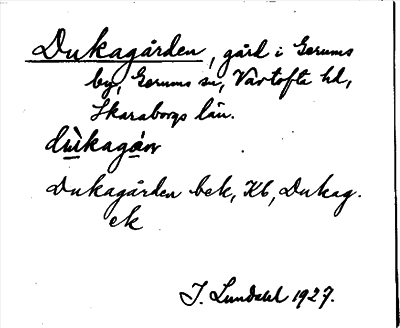 Dukagården, gård i Gerums
by, Gerums sn, Vartofta hd,
Skaraborgs län.
dùkagɑ̊ṇ
Dukagården bek, Kb, Dukag.
ek
J. Lundahl 1927.